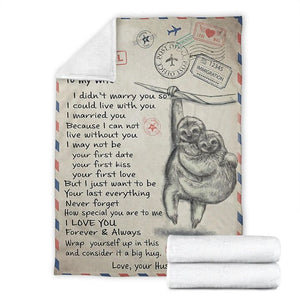 To My Wife
I didn't marry you so
I could live with you
I married you
Because I can not
live without you
I may not be
your first date
your first kiss
your first love
But I just want to be
Your last everything
Never forget
How special you are to me
I LOVE YOU
Forever & Always
Wrap yourself up in this
and consider it a big hug.
Love, your Hus
POST OFFICE
IMMIGRATION
12345